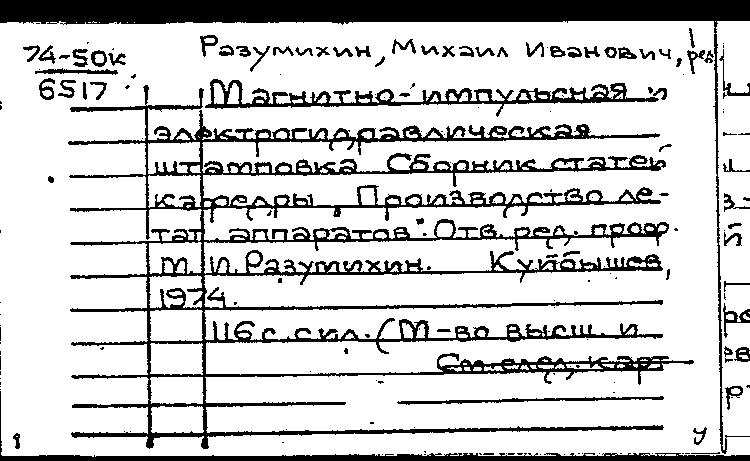 74-50к
6517
Разумихин, Михаил Иванович, ред.
Магнитно-импульсная и
электрогидравлическая
штамповка Сборник статей
кафедры „Производство ле-
тат. аппаратов". Отв. ред. проф.
М. И. Разумихин. Куйбышев,
1974.
116 с. с ил. (М-во высш. и
См. след. карт
у